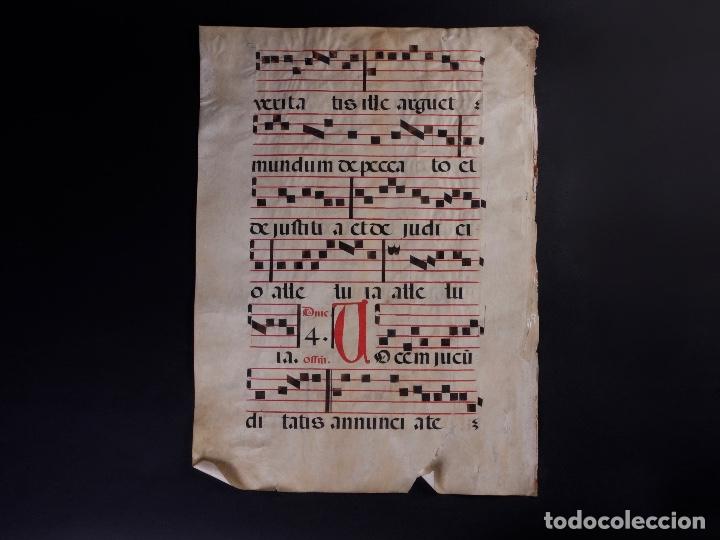 verita tis ille arguet :
mundum de pecca to et
de justiti a et de judi ci
o alle lu ia alle lu
Dnic.
4.
ia. offm. V O cem jucū
di tatis annunci ate :
todocoleccion.net